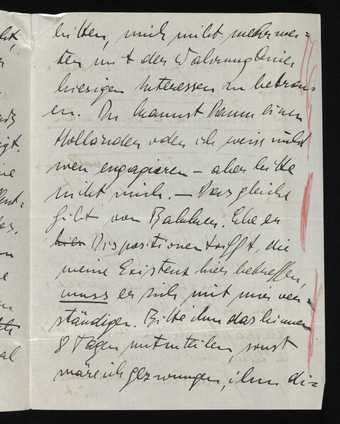 bitten, mich nicht mehr wei=
ter mit der Wahrung Deiner
hiesigen Interessen zu betrau=
en. Du kannst Dann einen
Holländer oder ich weiss nicht
wen engagieren – aber bitte
nicht mich. – Das gleiche
gilt von Ehe er
Dispositionen trifft, die
meine Existenz hier betreffen,
muss er sich mit mir ver=
ständigen. Bitte ihm das binnen
8 Tagen mitzuteilen, sonst
wäre ich gezwungen, ihm di=